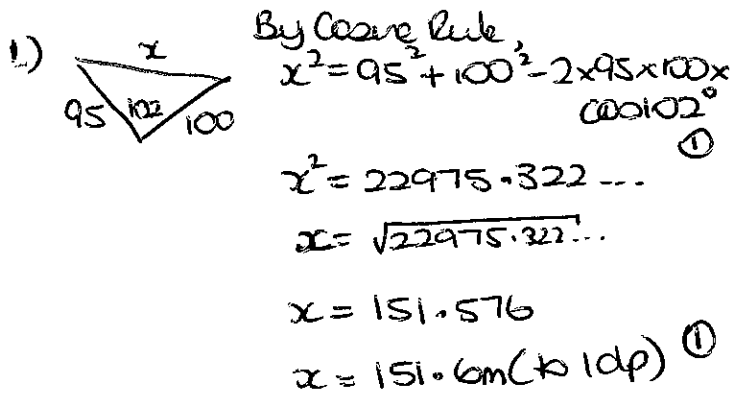 1.)
x
95
102
100
By Cosine Rule,
x² = 95² + 100² - 2×95×100×
cos102°
①
x² = 22975.322...
x = √22975.322...
x = 151.576
x = 151.6m (to 1dp) ①